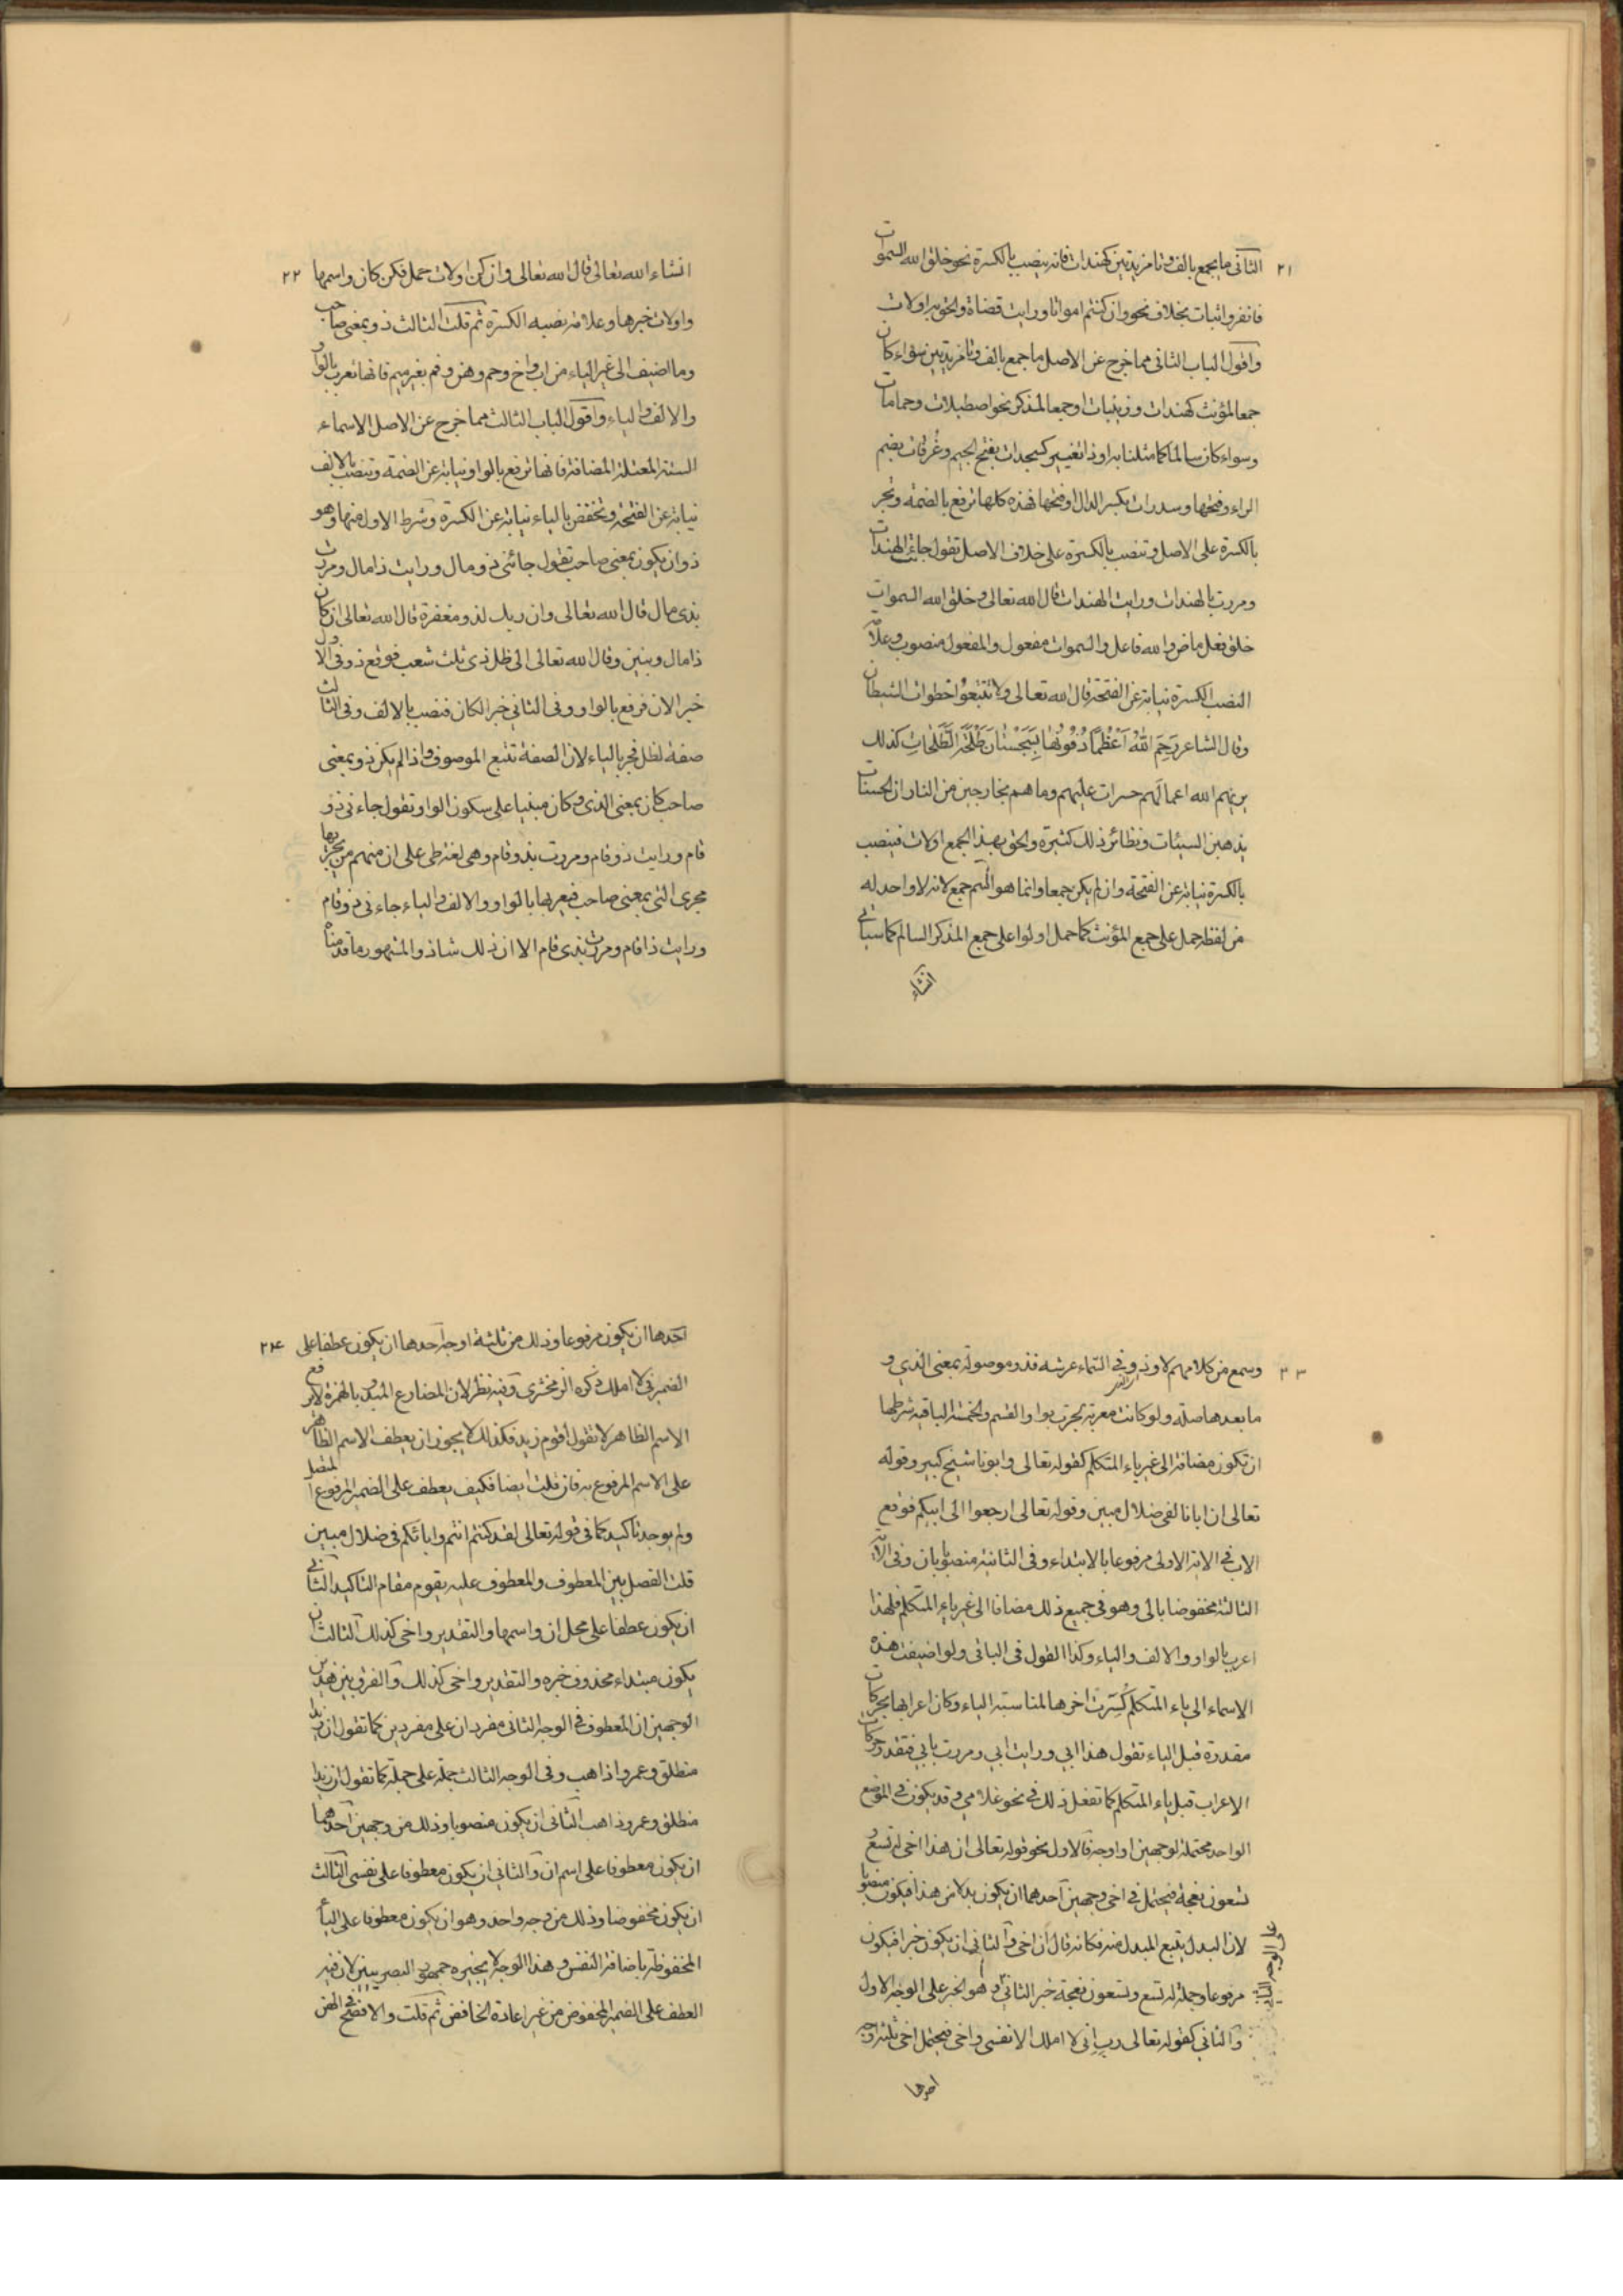 ٢١ الثانى ما يجمع بالف وتا مزيدتين كهندات فانه ينصب بالكسرة نحو خلق الله السموات
فانفروا ثبات بخلاف نحو وان كنتم امواتا ورايت قضاة والحق به اولات
واقول الباب الثانى مما خرج عن الاصل ما جمع بالف وتا مزيدتين سواء كان
جمعا لمؤنث كهندات وزينبات او جمعا لمذكر نحو اصطبلات وحمامات
وسواء كان سالما كما مثلنا به او ذا تغيير كسجدات بفتح الجيم وغُرفات بضم
الراء وفتحها وسدرات بكسر الدال او فتحها فهذه كلها ترفع بالضمة وتجر
بالكسرة على الاصل وتنصب بالكسرة على خلاف الاصل تقول جائت الهندات
ومررت بالهندات ورايت الهندات قال الله تعالى وخلق الله السموات
خلق فعل ماض والله فاعل والسموات مفعول والمفعول منصوب وعلامة
النصب الكسرة نيابة عن الفتحة قال الله تعالى ولا تَتَّبعُوا خطوات الشيطان
وقال الشاعر رَحِمَ اللّٰهُ اَعْظُمًا دَفَنُوْهَا بِسَجِسْتَانَ طَلْحَةَ الطَّلَحاتِ كذلك
يريهم الله اعمالَهم حسرات عليهم وما هم بخارجين من النار ان الحسنات
يذهبن السيئات ونظائر ذلك كثيرة والحق بهذا الجمع اولات فينصب
بالكسرة نيابة عن الفتحة وان لم يكن جمعا وانما هو اسم جمع لانه لا واحد له
من لفظه حمل على جمع المؤنث كما حمل اولوا على جمع المذكر السالم كما سياتى
انشاء
٢٢ انشاء الله تعالى قال الله تعالى وان كن اولات حمل فكن كان واسمها
واولات خبرها وعلامة نصبه الكسرة ثم قلت الثالث ذو بمعنى صاحب
وما اضيف الى غير الياء من اب واخ وحم وهن وفم بغير ميم فانها تعرب بالواو
والالف والياء واقول الباب الثالث مما خرج عن الاصل الاسماء
الستة المعتلة المضافة فانها ترفع بالواو نيابة عن الضمة وتنصب بالالف
نيابة عن الفتحة وتخفض بالياء نيابة عن الكسرة وشرط الاول منها وهو
ذو ان يكون بمعنى صاحب تقول جائنى ذو مال ورايت ذا مال ومررت
بذى مال قال الله تعالى وان ربك لذو مغفرة قال الله تعالى ان كان
ذا مال وبنين وقال الله تعالى الى ظل ذى ثلث شعب فوقع ذو فى الاول
خبر الان فرفع بالواو وفى الثانى خبر الكان فنصب بالالف وفى الثالث
صفة لظل فجر بالياء لان الصفة تتبع الموصوف واذا لم يكن ذو بمعنى
صاحب كان بمعنى الذى وكان مبنيا على سكون الواو تقول جاءنى ذو
قام ورايت ذو قام ومررت بذو قام وهى لغة طى على ان منهم من يجريها
مجرى التى بمعنى صاحب فيعربها بالواو والالف والياء جاءنى ذو قام
ورايت ذا قام ومررت بذى قام الا ان ذلك شاذ والمشهور ما قدمناه
٢٣ وسمع من كلامهم لا وذو فى السماء عرشه فذو موصولة بمعنى الذى و
ما بعدها صلة ولو كانت معربة لجرت بواو القسم والخمسة الباقية شرطها
ان تكون مضافة الى غير ياء المتكلم كقوله تعالى وابونا شيخ كبير وقوله
تعالى ان ابانا لفى ضلال مبين وقوله تعالى ارجعوا الى ابيكم فوقع
الاب فى الاية الاولى مرفوعا بالابتداء وفى الثانية منصوبا بان وفى الاية
الثالثة مخفوضا بالى وهو فى جميع ذلك مضافا الى غير ياء المتكلم فلهذا
اعرب بالواو والالف والياء وكذا القول فى الباقى ولو اضيفت هذه
الاسماء الى ياء المتكلم كُسِرَت اخرها لمناسبة الياء وكان اعرابها بحركات
مقدرة قبل الياء تقول هذا ابي ورايت ابي ومررت بابي فتقدر حركات
الاعراب قبل ياء المتكلم كما تفعل ذلك فى نحو غلامي وقد يكون فى الموضع
الواحد محتملة لوجهين او اوجه فالاول نحو قوله تعالى ان هذا اخى له تسع و
تسعون نعجة فيحتمل فى اخى وجهين احدهما ان يكون بدلا من هذا فيكون منصوبا
لان البدل يتبع المبدل منه فكانه قال ان اخى والثانى ان يكون خبرا فيكون
مرفوعا وجملة له تسع وتسعون نعجة خبر الثانى وهو الخبر على الوجه الاول
والثانى كقوله تعالى رب انى لا املك الا نفسى واخى فيحتمل اخى ثلثة اوجه
على الوجه الثانى
احدها
٢٤ احدها ان يكون مرفوعا وذلك من ثلثة اوجه احدها ان يكون عطفا على
الضمير فى لا املك ذكره الزمخشرى وفيه نظر لان المضارع المبدو بالهمزة لا يرفع
الاسم الظاهر لا تقول اقوم زيد فكذلك لا يجوز ان يعطف الاسم الظاهر
على الاسم المرفوع به فان قلت ايضا فكيف يعطف على الضمير المرفوع المتصل
ولم يوجد تاكيد كما فى قوله تعالى لقد كنتم انتم واباؤكم فى ضلال مبين
قلت الفصل بين المعطوف والمعطوف عليه يقوم مقام التاكيد الثانى
ان يكون عطفا على محل ان واسمها والتقدير واخى كذلك الثالث ان
يكون مبتداء محذوف خبره والتقدير واخى كذلك والفرق بين هذين
الوجهين ان المعطوف فى الوجه الثانى مفردان على مفردين كما تقول ان زيدا
منطلق وعمروا ذاهب وفى الوجه الثالث جملة على جملة كما تقول ان زيدا
منطلق وعمرو ذاهب الثانى ان يكون منصوبا وذلك من وجهين احدهما
ان يكون معطوفا على اسم ان والثانى ان يكون معطوفا على نفسى الثالث
ان يكون مخفوضا وذلك من وجه واحد وهو ان يكون معطوفا على الياء
المخفوظة باضافة النفس وهذا الوجه لا يجيزه جمهور البصريين لان فيه
العطف على الضمير المخفوض من غير اعادة الخافض ثم قلت والافصح فى الهن